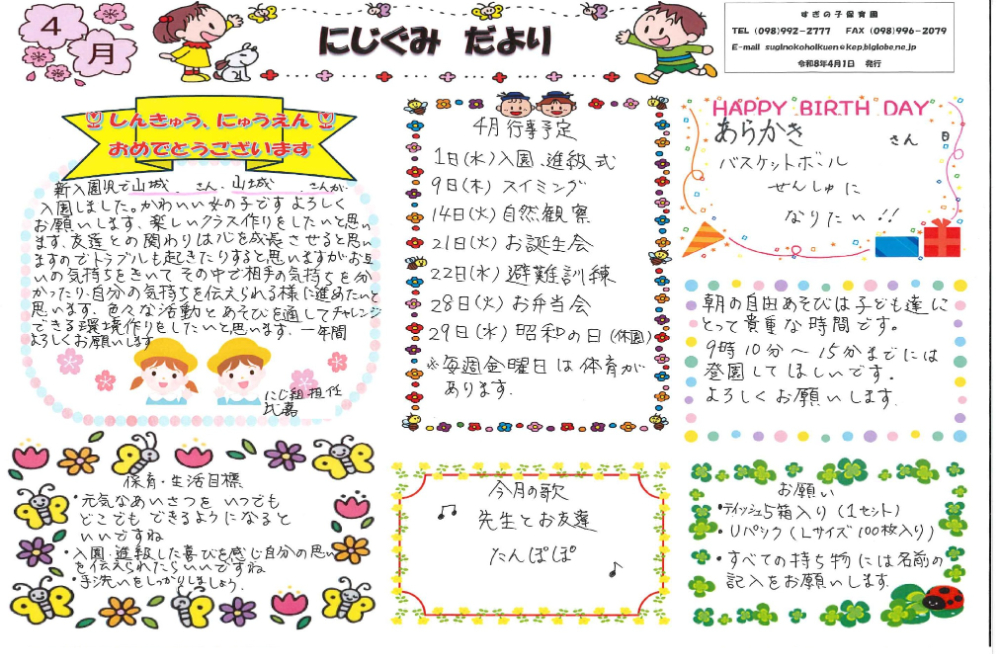 4月
にじぐみ だより
すぎの子保育園
TEL (098)992-2777 FAX (098)996-2079
E-mail suginokohoikuen@kep.biglobe.ne.jp
令和8年4月1日 発行
しんきゅう、にゅうえん
おめでとうございます
新入園児で山城 さん、山城 さんが
入園しました。かわいい女の子です よろしく
お願いします。楽しいクラス作りをしたいと思い
ます。友達との関わりは心を成長させると思い
ますのでトラブルも起きたりすると思いますがお互
いの気持ちをきいて その中で相手の気持ちを分
かったり、自分の気持ちを伝えられる様に進めたいと
思います。色々な活動とあそびを通してチャレンジ
できる環境作りをしたいと思います。一年間
よろしくお願いします
にじ組担任
比嘉
4月行事予定
1日(水)入園、進級式
9日(木)スイミング
14日(火)自然観察
21日(火)お誕生会
22日(水)避難訓練
28日(火)お弁当会
29日(水)昭和の日(休園)
※毎週金曜日は体育が
あります。
HAPPY BIRTH DAY
あらかき さん 日
バスケットボール
せんしゅに
なりたい!!
朝の自由あそびは子ども達に
とって貴重な時間です。
9時10分～15分までには
登園してほしいです。
よろしくお願いします。
保育・生活目標
・元気なあいさつを いつでも
どこでも できるようになると
いいですね
・入園・進級した喜びを感じ自分の思い
を伝えられたらいいですね
・手洗いをしっかりしましょう。
今月の歌
先生とお友達
たんぽぽ
お願い
・ティッシュ5箱入り(1セット)
・Uパック(Lサイズ100枚入り)
・すべての持ち物には名前の
記入をお願いします。